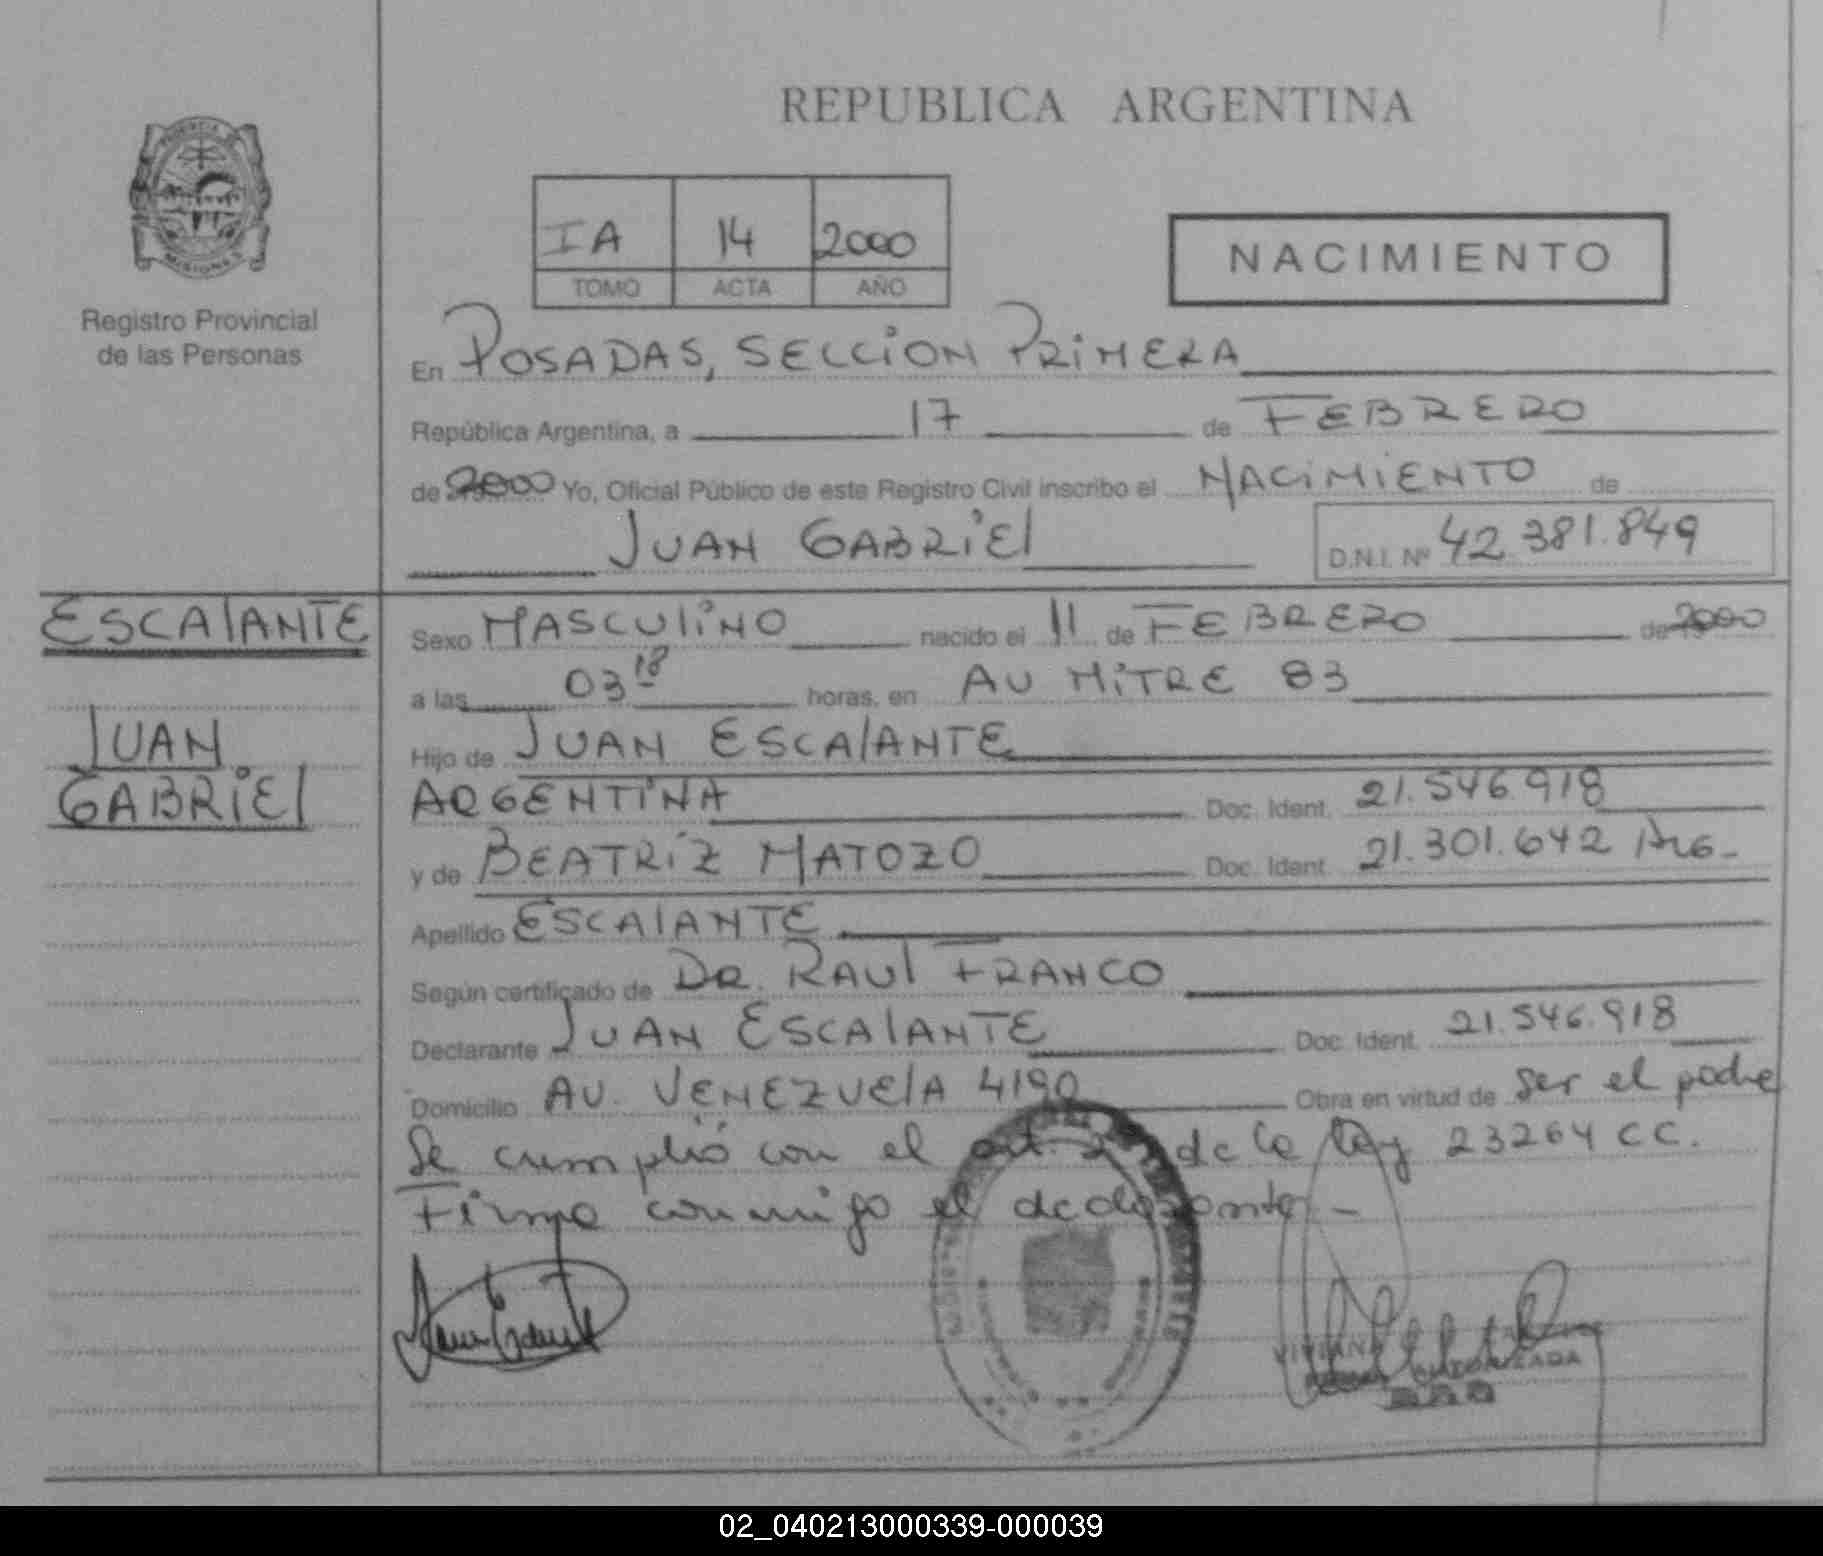 REPUBLICA ARGENTINA
MISIONES
Registro Provincial
de las Personas
IA 14 2000
TOMO ACTA AÑO
NACIMIENTO
En POSADAS, SECCION PRIMERA
República Argentina, a 17 de FEBRERO
de 2000 Yo, Oficial Público de este Registro Civil inscribo el NACIMIENTO de
JUAN GABRIEL D.N.I. Nº 42.381.849
ESCALANTE
JUAN
GABRIEL
Sexo MASCULINO nacido el 11 de FEBRERO de 2000
a las 03 18 horas, en AV MITRE 83
Hijo de JUAN ESCALANTE
ARGENTINA Doc. Ident. 21.546.918
y de BEATRIZ MATOZO Doc. Ident. 21.301.642 ARG.-
Apellido ESCALANTE
Según certificado de DR. RAUL FRANCO
Declarante JUAN ESCALANTE Doc. Ident. 21.546.918
Domicilio AV. VENEZUELA 4190 Obra en virtud de ser el padre
Se cumplió con el art. de la ley 23264 CC.
Firma conmigo el declarante.-
VIVIANA
AUTORIZADA
02_040213000339-000039